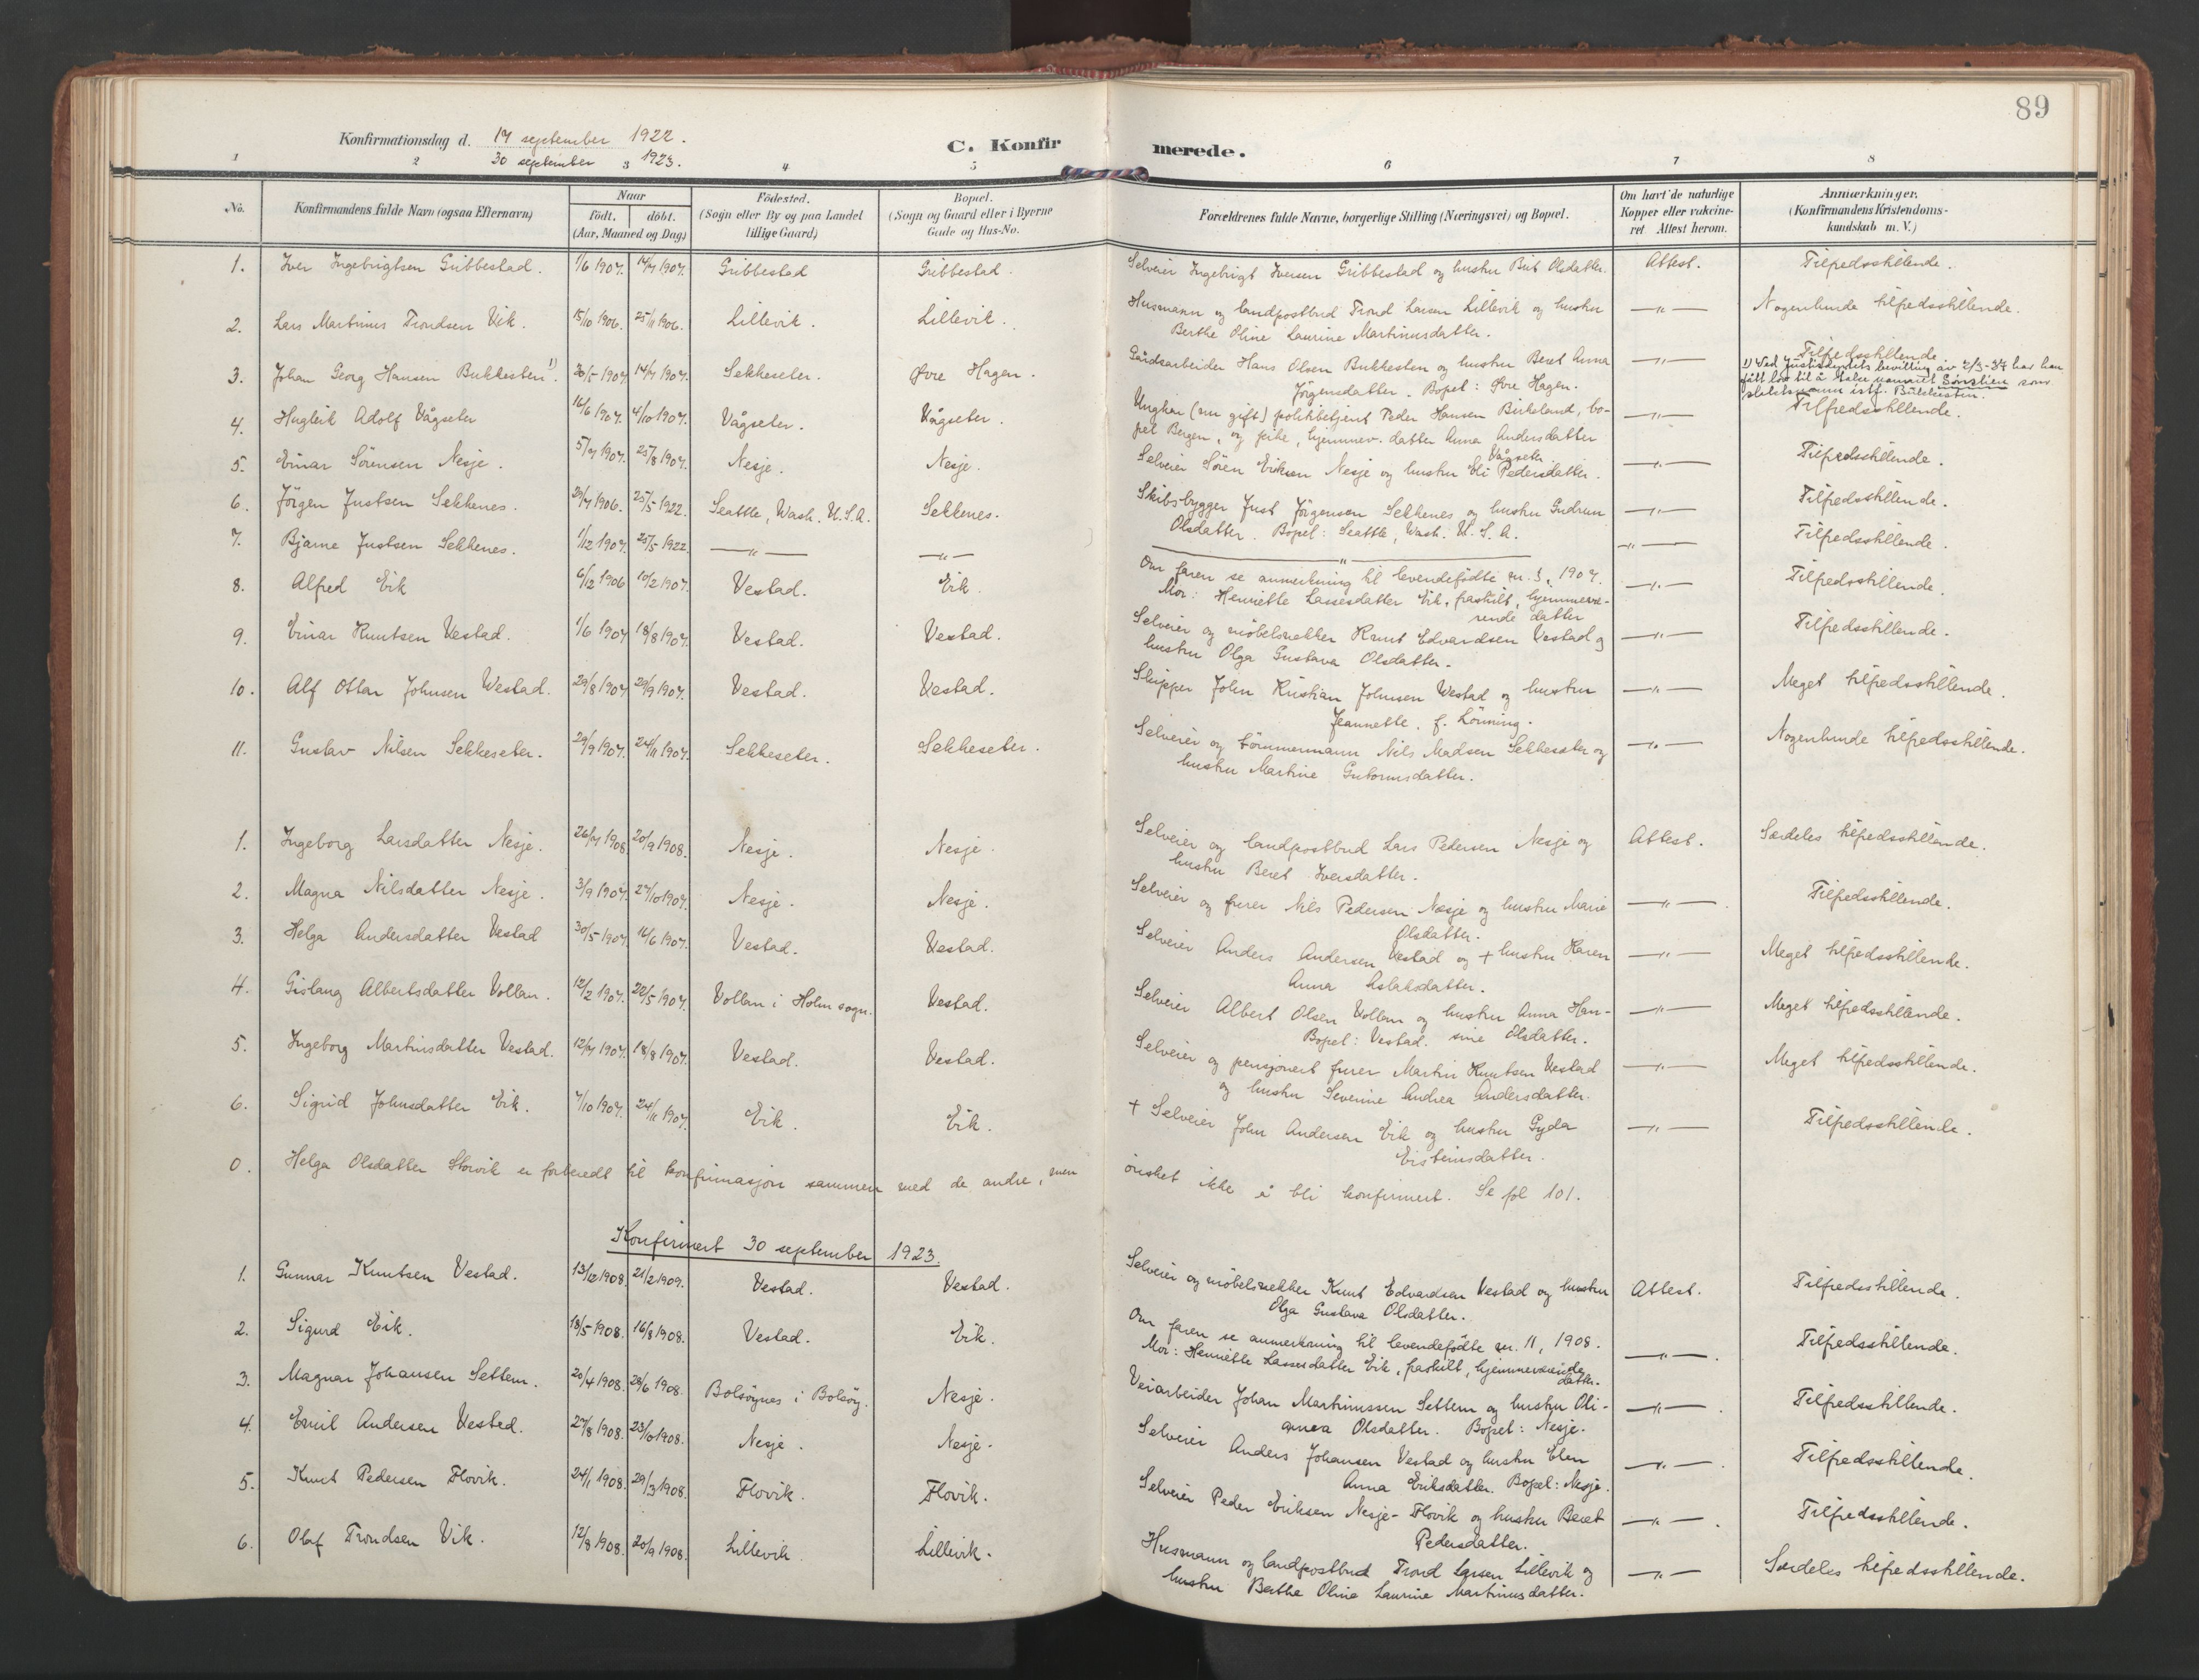 89
Konfirmationsdag d. 17 september 1922.
30 september 1923.
C. Konfirmerede.
1 2 3 4 5 6 7 8
No. Konfirmandens fulde Navn (ogsaa Efternavn) Naar født. døbt. (Aar, Maaned og Dag) Fødested. (Sogn eller By og paa Landet tillige Gaard) Bopæl. (Sogn og Gaard eller i Byerne Gade og Hus-No. Forældrenes fulde Navne, borgerlige Stilling (Næringsvei) og Bopæl. Om havt de naturlige Kopper eller vakcineret Attest herom. Anmærkninger. (Konfirmandens Kristendomskundskab m. V.)
1. Iver Ingebrigtsen Gribbestad. 1/6 1907. 14/7 1907. Gribbestad Gribbestad. Selveier Ingebrigt Iversen Gribbestad og hustru Brit Olsdatter. Attest. Tilfredsstillende.
2. Lars Martinus Trondsen Vik. 15/10 1906. 25/11 1906. Lillevik. Lillevik. Husmann og landpostbud Trond Larsen Lillevik og hustru —„— Nogenlunde tilfredsstillende.
Berthe Oline Laurine Martinusdatter.
3. Johan Georg Hansen Bukkesten 1). 20/5 1907 14/7 1907. Sekkeseter. Øvre Hagen. Gårdsarbeider Hans Olsen Bukkesten og hustru Beret Anna —„— Tilfredsstillende
Jörgensdatter. Bopel: Øvre Hagen.
1) Ved Justisdep.ts bevilling av 2/3-37 har han
fått lov til å ta navnet Sørslien som
slektsnavn istf. Bukkesten.
4. Hugleik Adolf Vågseter 16/6 1907. 4/10 1907. Vågseter. Vågseter. Ungkar (nu gift) politibetjent Peder Hansen Birkeland, bo- —„— Tilfredsstillende.
pel Bergen, og pike, hjemmev. datter Anna Andersdatter
Vågseter.
5. Einar Sörensen Nesje. 5/7 1907. 25/8 1907. Nesje. Nesje. Selveier Sören Eriksen Nesje og hustru Eli Pedersdatter. —„— Tilfredsstillende.
6. Jörgen Justsen Sekkenes. 29/7 1906. 25/5 1922. Seattle, Wash. U.S.A. Sekkenes. Skibsbygger Just Jörgensen Sekkenes og hustru Gudrun —„— Tilfredsstillende.
Olsdatter. Bopel: Seattle, Wash. U.S.A.
7. Bjarne Justsen Sekkenes. 1/12 1907. 25/5 1922. —„— —„— —„— —„— Tilfredsstillende.
8. Alfred Eik 6/12 1906 10/2 1907. Vestad. Eik. Om faren se anmerkning til levendefödte nr. 3, 1907. —„— Tilfredsstillende.
Mor: Henriette Lassesdatter Eik, fraskilt, hjemmevæ-
rende datter
9. Einar Knutsen Vestad. 1/6 1907 18/8 1907. Vestad. Vestad. Selveier og möbelsnekker Knut Edvardsen Vestad og —„— Tilfredsstillende.
hustru Olga Gustava Olsdatter.
10. Alf Ottar Johnsen Westad. 29/8 1907 29/9 1907. Vestad. Vestad. Skipper John Kristian Johnsen Westad og hustru —„— Meget tilfredsstillende.
Jeannette. f. Lönning.
11. Gustav Nilsen Sekkeseter. 29/9 1907. 24/11 1907. Sekkeseter. Sekkeseter. Selveier og tömmermann Nils Madsen Sekkeseter og —„— Nogenlunde tilfredsstillende.
hustru Martine Guttormsdatter.
1. Ingeborg Larsdatter Nesje. 26/7 1908 20/9 1908. Nesje. Nesje. Selveier og landpostbud Lars Pedersen Nesje og Attest. Særdeles tilfredsstillende.
hustru Beret Iversdatter.
2. Magna Nilsdatter Nesje. 3/9 1907. 27/10 1907. Nesje. Nesje. Selveier og furer Nils Pedersen Nesje og hustru Marie —„—. Tilfredsstillende.
Olsdatter.
3. Helga Andersdatter Vestad 30/5 1907. 16/6 1907. Vestad. Vestad. Selveier Anders Andersen Vestad og + hustru Karen —„— Meget tilfredsstillende.
Anna Aslaksdatter.
4. Gislaug Albertsdatter Vollan. 12/2 1907. 22/5 1907. Vollan i Holm sogn. Vestad. Selveier Albert Olsen Vollan og hustru Anna Han- —„— Meget tilfredsstillende.
Bopel: Vestad. sine Olsdatter.
5. Ingeborg Martinsdatter Vestad. 12/7 1907. 18/8 1907. Vestad. Vestad. Selveier og pensjonert furer Martin Knutsen Vestad —„— Meget tilfredsstillende.
og hustru Severine Andrea Andersdatter.
6. Sigrid Johnsdatter Eik. 7/10 1907. 24/11 1907. Eik. Eik. + Selveier John Andersen Eik og hustru Gyda —„— Tilfredsstillende.
Eisteinsdatter.
0. Helga Olsdatter Storvik er forberedt til konfirmasjon sammen med de andre, men önsket ikke å bli konfirmert. Se fol 101.
Konfirmert 30 september 1923.
1. Gunnar Knutsen Vestad. 13/12 1908. 21/2 1909. Vestad. Vestad. Selveier og möbelsnekker Knut Edvardsen Vestad og hustru Attest. Tilfredsstillende.
Olga Gustava Olsdatter.
2. Sigurd Eik. 18/5 1908. 16/8 1908. Vestad. Eik. Om faren se anmerkning til levendefödte nr. 11, 1908. —„—. Tilfredsstillende.
Mor: Henriette Lassesdatter Eik, fraskilt, hjemmeværende
datter.
3. Magnar Johansen Settem. 20/4 1908. 28/6 1908. Bolsöynes i Bolsöy. Nesje. Veiarbeider Johan Martinussen Settem og hustru Oli- —„—. Tilfredsstillende.
anea Olsdatter. Bopel: Nesje.
4. Emil Andersen Vestad. 27/8 1908. 23/10 1908. Nesje. Nesje. Selveier Anders Johansen Vestad og hustru Elen —„—. Tilfredsstillende.
Anna Eriksdatter. Bopel: Nesje.
5. Knut Pedersen Flovik. 24/1 1908. 29/3 1908. Flovik. Flovik. Selveier Peder Eriksen Nesje-Flovik og hustru Beret —„—. Tilfredsstillende.
Pedersdatter.
6. Olaf Trondsen Vik. 12/8 1908. 20/9 1908. Lillevik. Lillevik. Husmann og landpostbud Trond Larsen Lillevik og —„— Særdeles tilfredsstillende.
hustru Berthe Oline Laurine Martinusdatter.